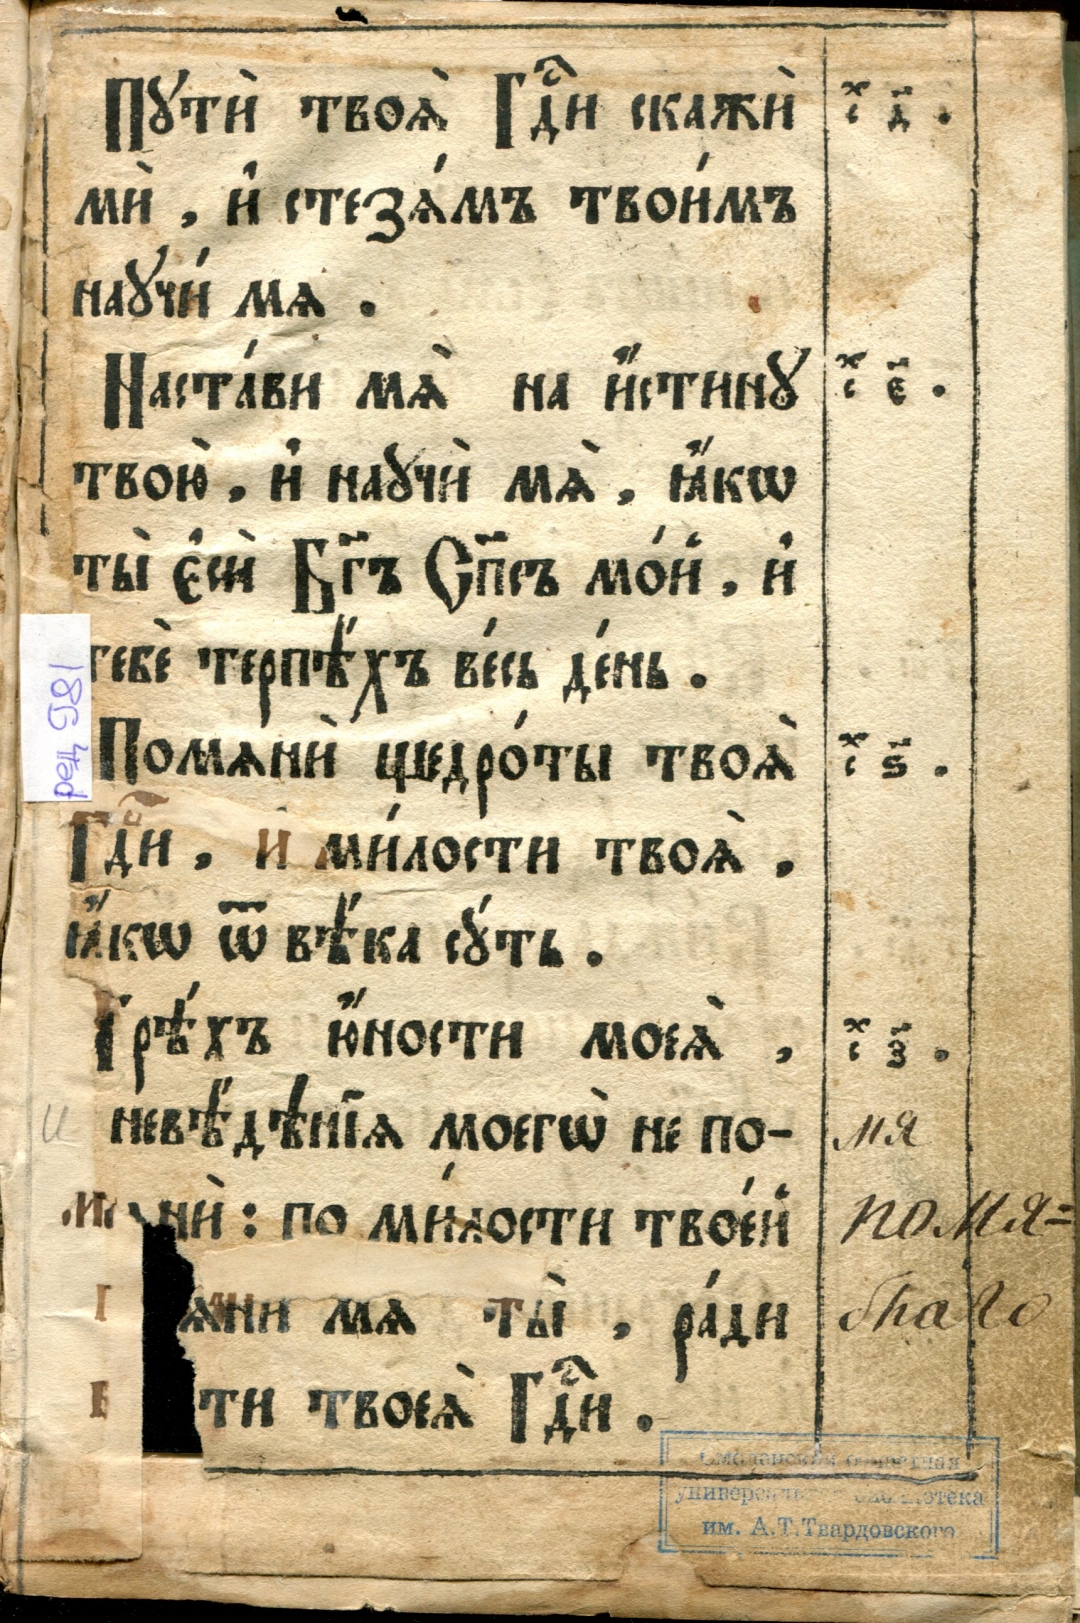 Пꙋтѝ твоѧ̀ Гдⷭ҇и скажѝ
стⷯ д҃.
мѝ, и҆ стезѧ́мъ твои́мъ
наꙋчи́ мѧ.
Наста́ви мѧ̀ на и҆́стинꙋ
стⷯ є҃.
твою̀, и҆ наꙋчѝ мѧ̀, ꙗ҆́кѡ
ты̀ є҆сѝ Бг҃ъ Сп҃съ мо́й, и҆
тебѐ терпѣ́хъ ве́сь де́нь.
Помѧнѝ щедрѡ́ты твоѧ̀
стⷯ ѕ҃.
Гдⷭ҇и, и҆ ми́лости твоѧ̀,
ꙗ҆́кѡ ѿ вѣ́ка сꙋ́ть.
Грѣ́хъ ю҆́ности моеѧ̀,
стⷯ з҃.
и невѣ́дѣнїѧ моегѡ̀ не по-
нѝ: по ми́лости твое́й
мя
помя=
ѧни мѧ ты̀, ра́ди
благо
ти твоеѧ̀ Гдⷭ҇и.
ред 1859
Смоленская областная
универсальная библиотека
им. А.Т.Твардовского